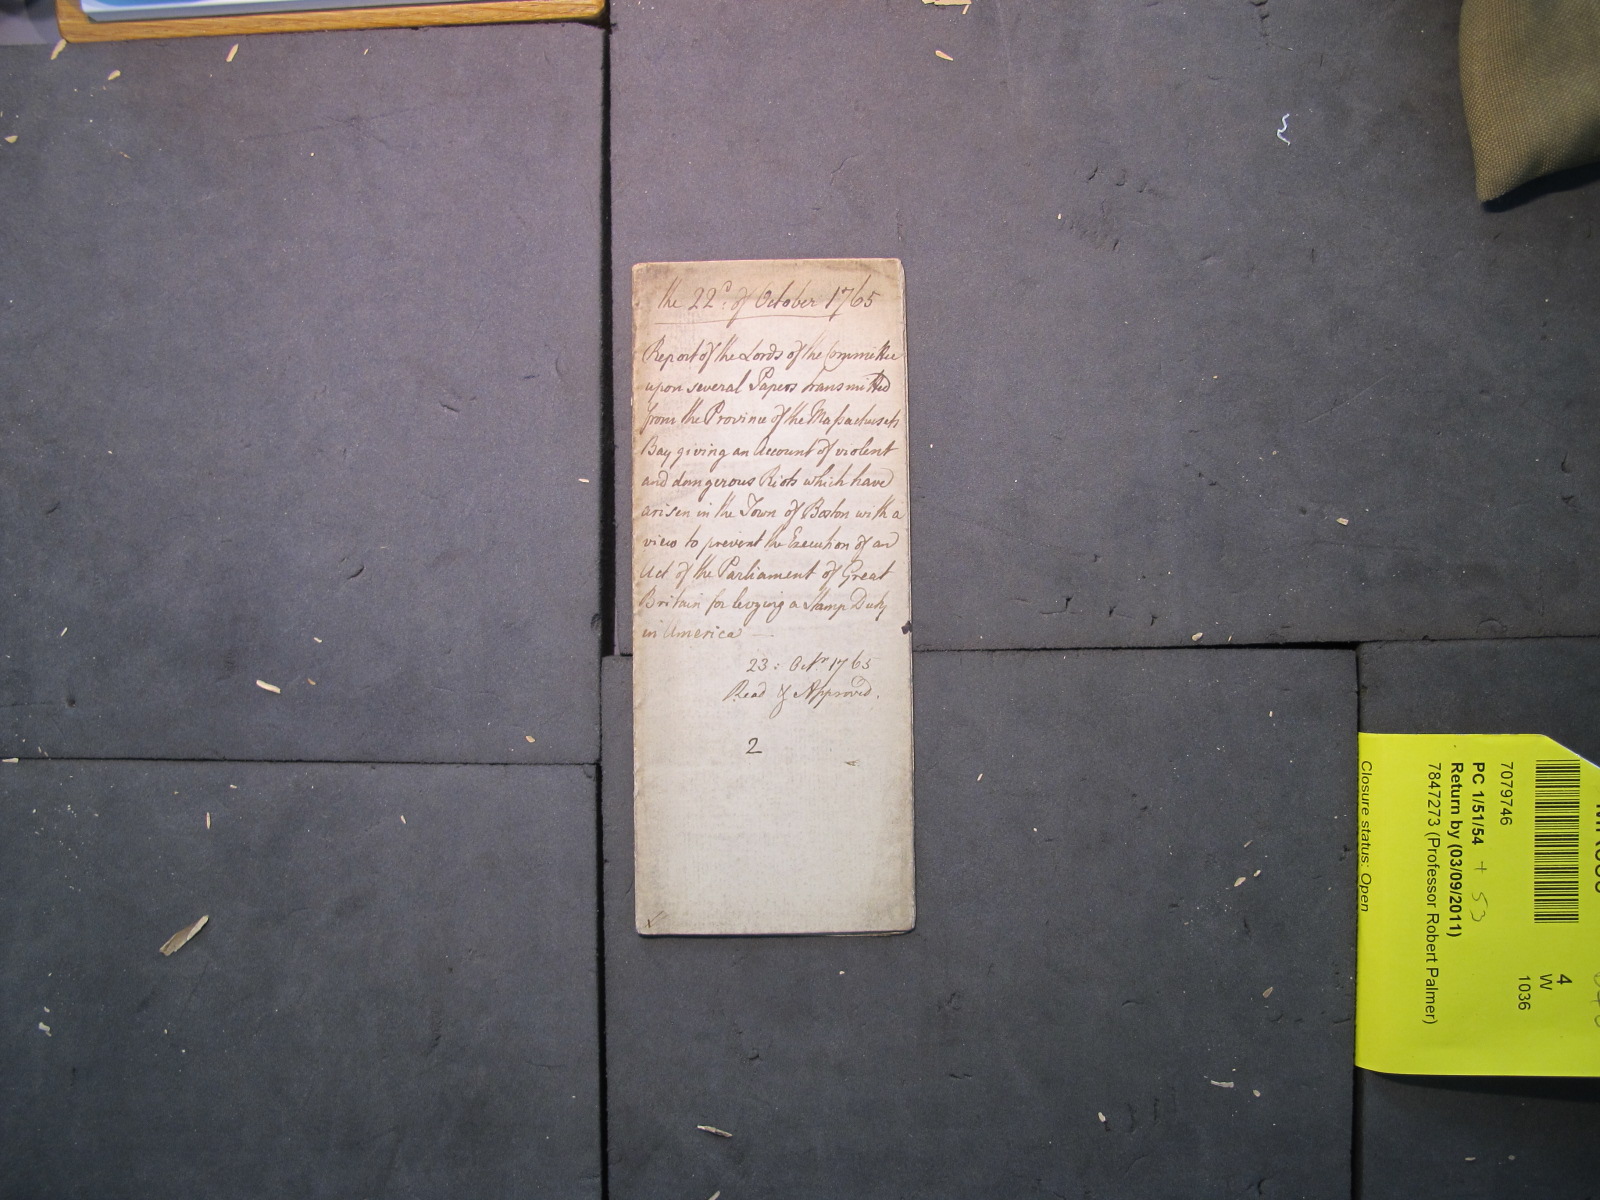 the 22d. of October 1765
Report of the Lords of the Committee
upon several Papers transmitted
from the Province of the Massachusets
Bay giving an Account of violent
and dangerous Riots which have
arisen in the Town of Boston with a
view to prevent the Execution of an
Act of the Parliament of Great
Britain for levying a Stamp Duty
in America
23: Octr. 1765
Read & Approved.
2
7079746
PC 1/51/54 + 53
Return by (03/09/2011)
7847273 (Professor Robert Palmer)
Closure status: Open
4
W
1036